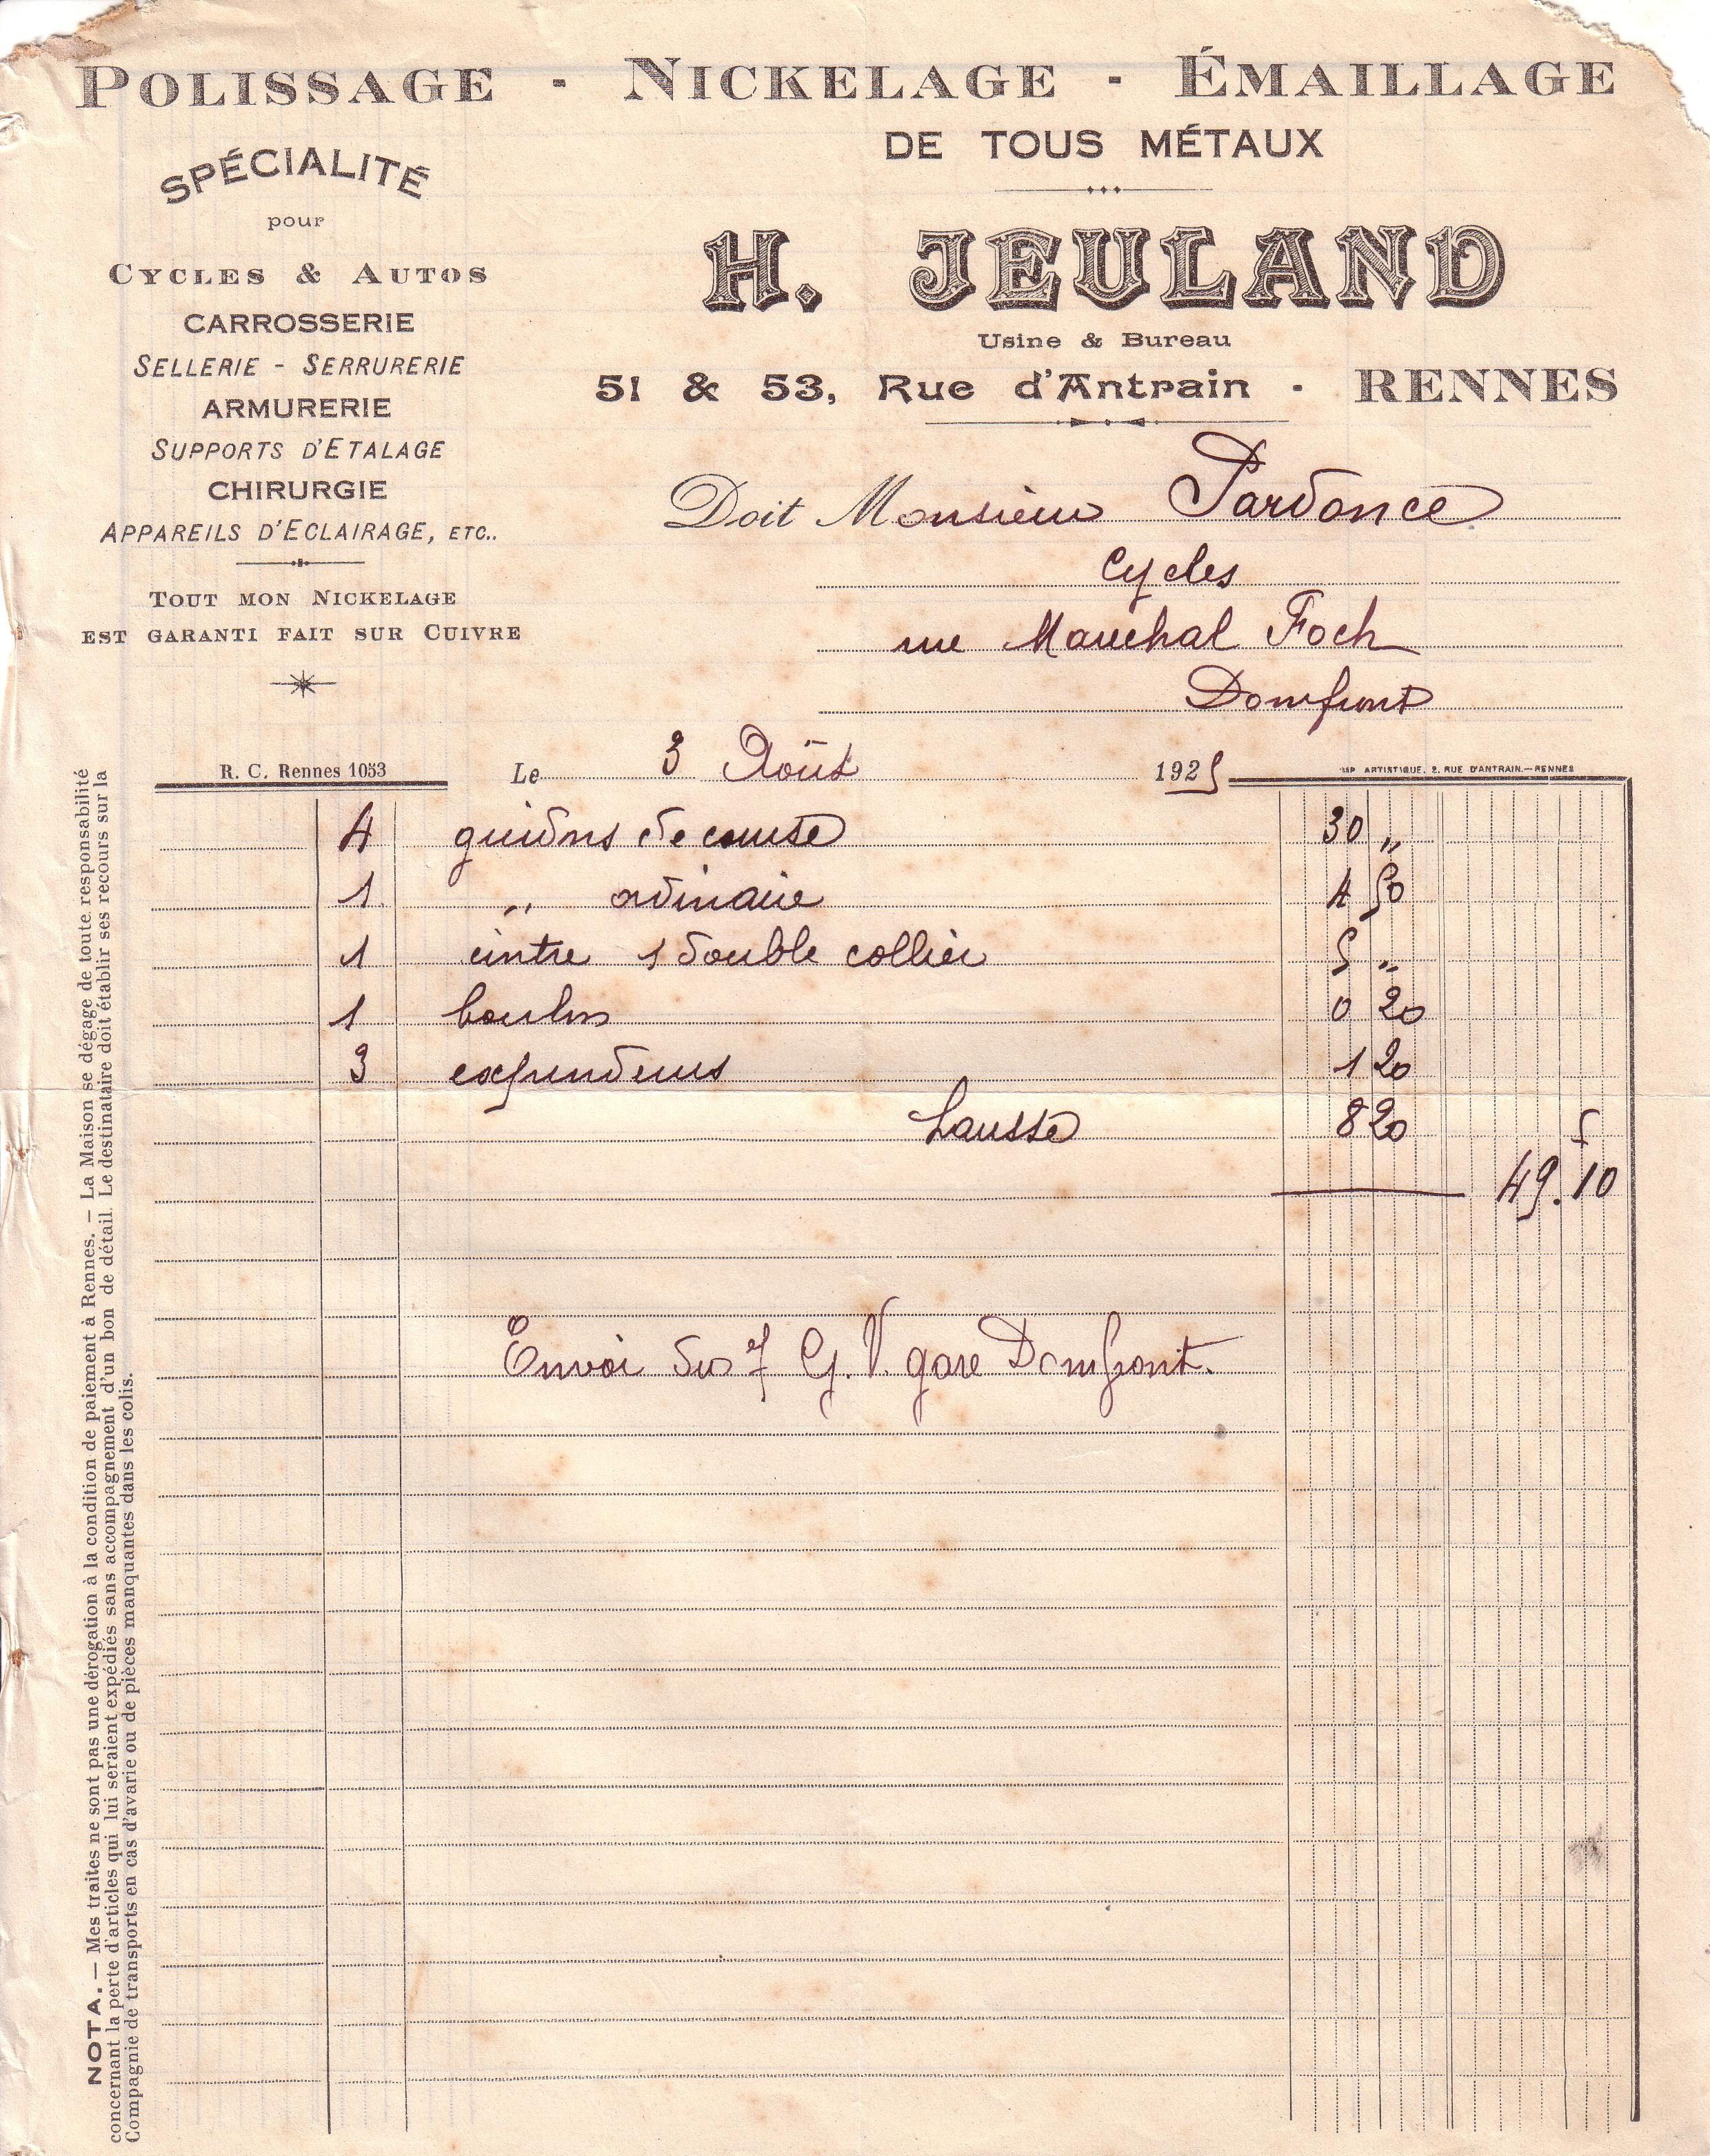 POLISSAGE - NICKELAGE - ÉMAILLAGE
DE TOUS MÉTAUX
SPÉCIALITÉ
pour
CYCLES & AUTOS
CARROSSERIE
SELLERIE - SERRURERIE
ARMURERIE
SUPPORTS D'ETALAGE
CHIRURGIE
APPAREILS D'ECLAIRAGE, ETC..
TOUT MON NICKELAGE
EST GARANTI FAIT SUR CUIVRE
H. JEULAND
Usine & Bureau
51 & 53, Rue d'Antrain - RENNES
Doit Monsieur Pardonce
Cycles
rue Marechal Foch
Domfront
R. C. Rennes 1053
Le 3 Août 1925
IMP ARTISTIQUE. 2. RUE D'ANTRAIN.—RENNES
4 guidons de course 30 "
1 " ordinaire 4 50
1 cintre 1 double collier 5 "
1 boulon 0 20
3 expendeurs 1 20
hausse 8 20
f
49.10
Envoi G. V. gare Domfront.
NOTA. — Mes traites ne sont pas une dérogation à la condition de paiement à Rennes. — La Maison se dégage de toute responsabilité
concernant la perte d'articles qui lui seraient expédiés sans accompagnement d'un bon de détail. Le destinataire doit établir ses recours sur la
Compagnie de transports en cas d'avarie ou de pièces manquantes dans les colis.